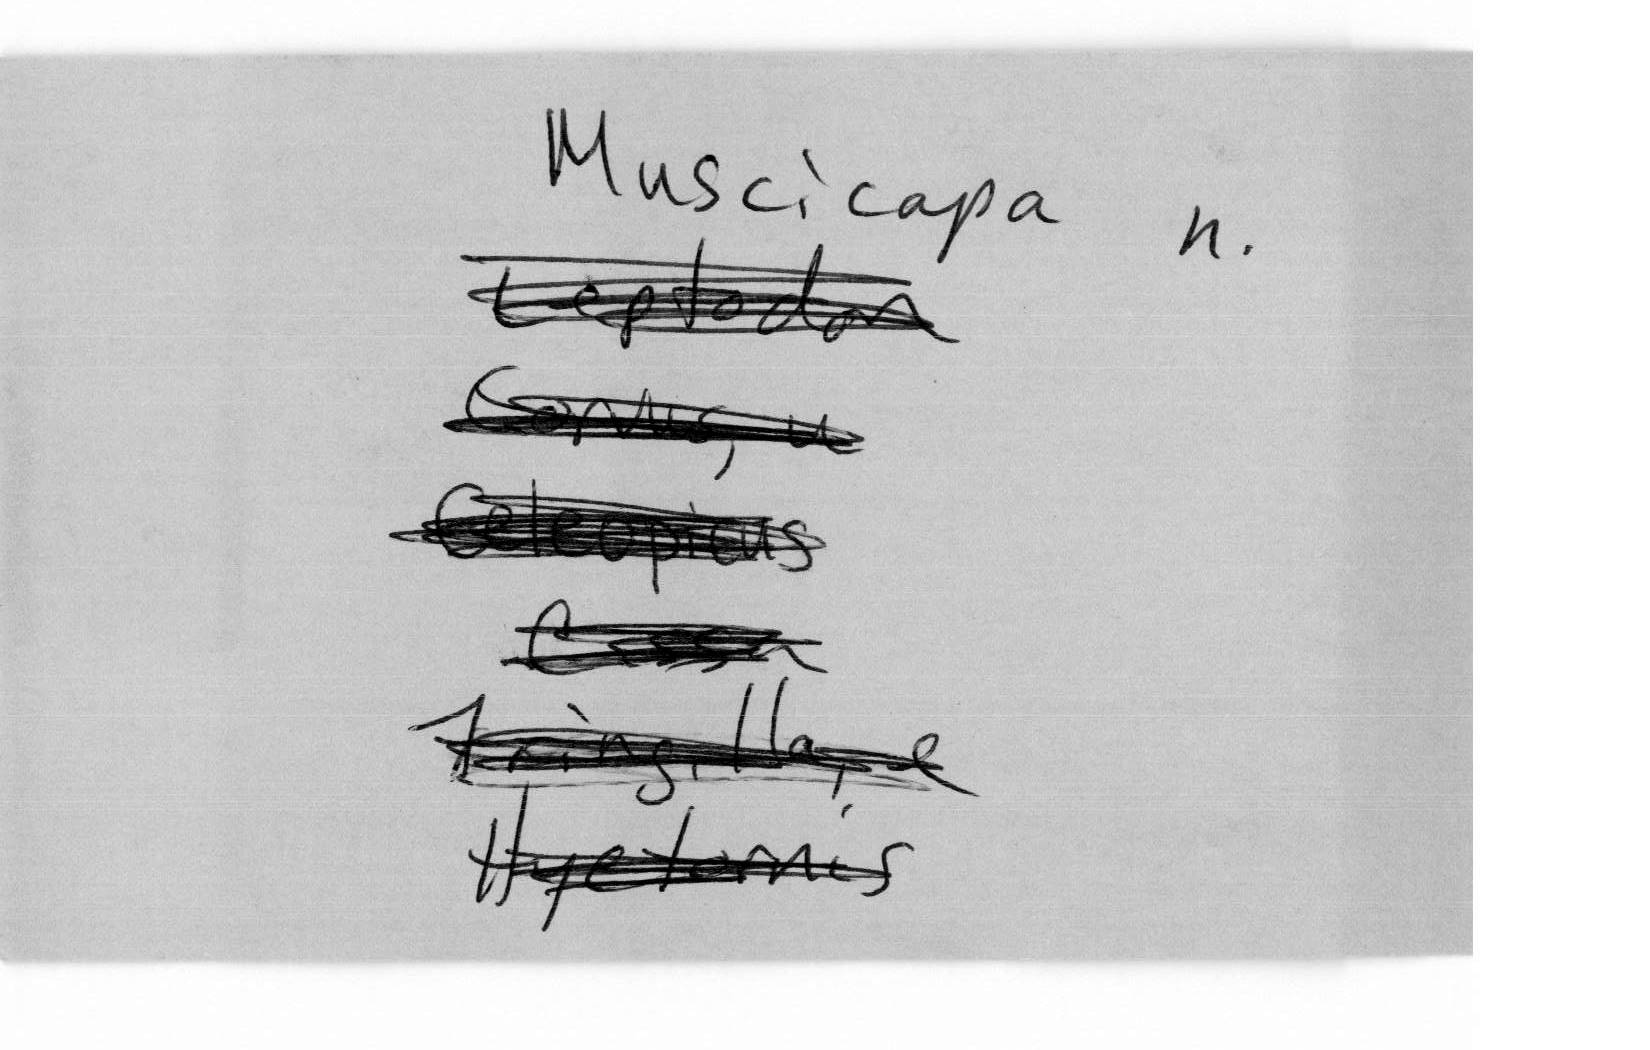 Muscicapa n.
Leptodon
Corvus, u
Celeopicus
Fringilla, e
Hyetornis